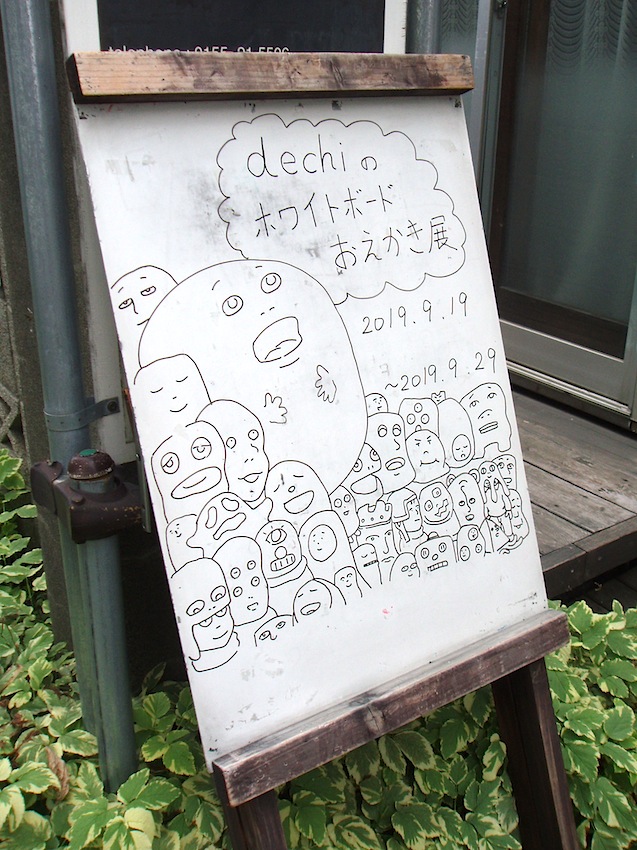 telephone : 0155-21-5506
dechiの
ホワイトボード
おえかき展
2019.9.19
～2019.9.29